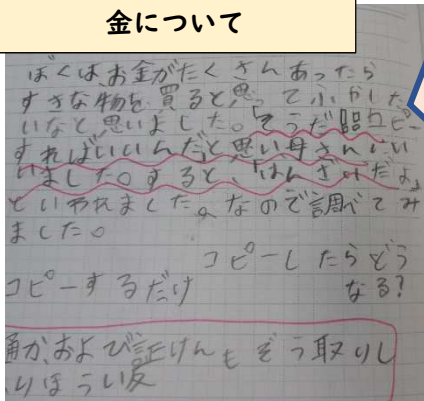 金について
ぼくは、お金がたくさんあったら
すきな物を買ると思ってふやした
いなと思いました。「そうだ コピー
すればいいんだ」と思い母さんにい
いました。すると、「はんざいだよ」
といわれました。なので調べてみ
ました。
コピーしたらどう
なる?
コピーするだけ
通か、および証けんもぞう取りし
りほうい反